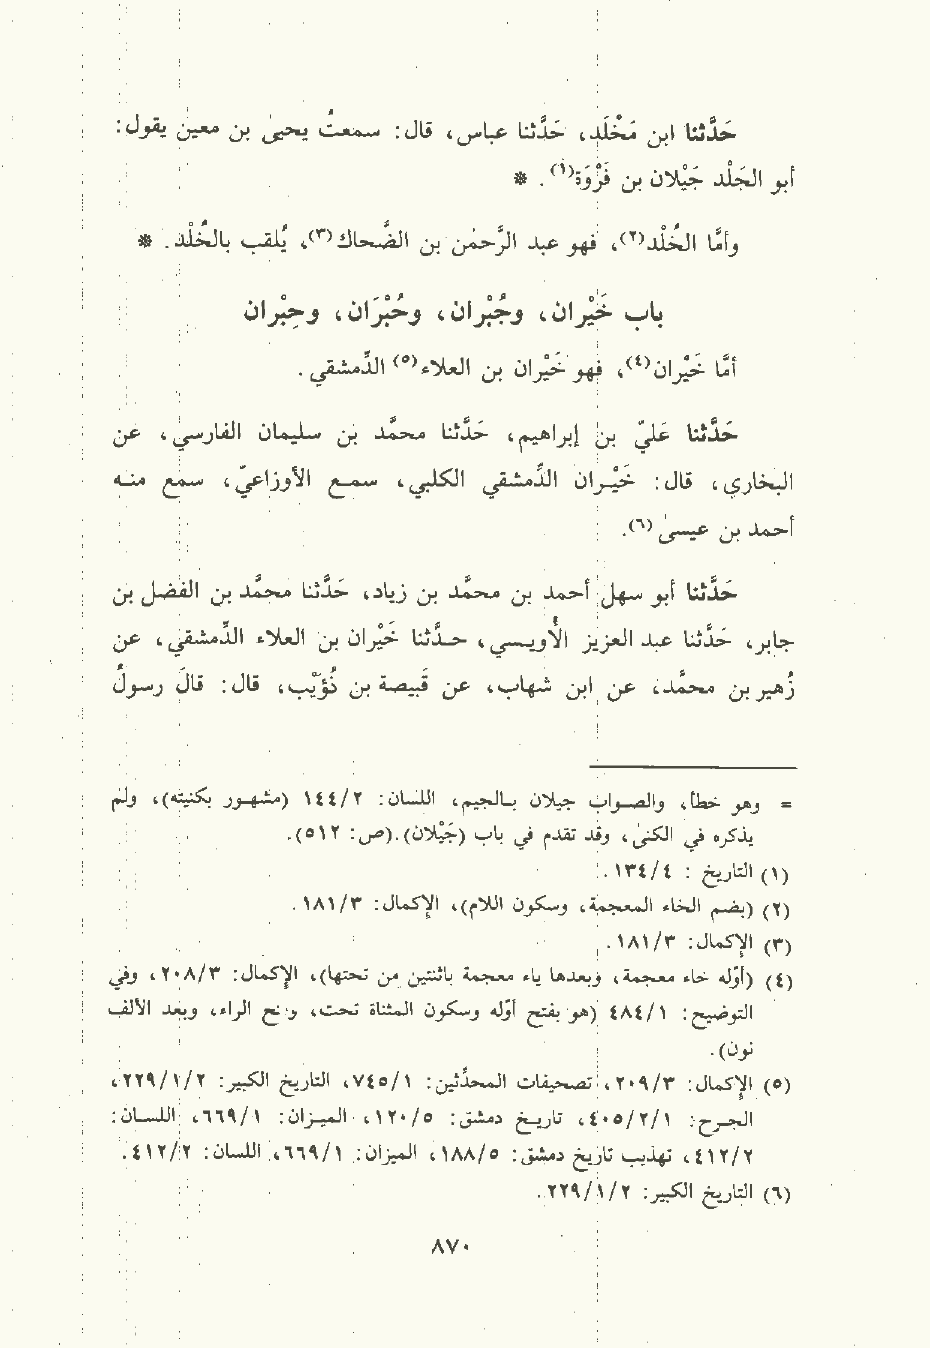 حَدَّثنا ابن مَخْلَد، حَدَّثنا عباس، قال: سمعتُ يحيىٰ بن معين يقول:
أبو الجَلْد جَيْلان بن فَرْوَة(١). *
وأمَّا الخُلْد(٢)، فهو عبد الرَّحمٰن بن الضَّحاك(٣)، يُلقب بالخُلْد. *
باب خَيْران، وجُبْران، وحُبْرَان، وحِبْران
أمَّا خَيْران(٤)، فهو خَيْران بن العلاء(٥) الدِّمشقي.
حَدَّثنا عَليّ بن إبراهيم، حَدَّثنا محمَّد بن سليمان الفارسي، عن
البخاري، قال: خَيْران الدِّمشقي الكلبي، سمع الأوزاعيّ، سمع منه
أحمد بن عيسىٰ(٦).
حَدَّثنا أبو سهل أحمد بن محمَّد بن زياد، حَدَّثنا محمَّد بن الفضل بن
جابر، حَدَّثنا عبد العزيز الأُويسي، حدَّثنا خَيْران بن العلاء الدِّمشقي، عن
زُهير بن محمَّد، عن ابن شهاب، عن قَبيصة بن ذُؤَيْب، قال: قالَ رسولُ
= وهو خطأ، والصواب جيلان بالجيم، اللسان: ١٤٤/٢ (مشهور بكنيته)، ولم
يذكره في الكنىٰ، وقد تقدم في باب (جَيْلان). (ص: ٥١٢).
(١) التاريخ : ١٣٤/٤.
(٢) (بضم الخاء المعجمة، وسكون اللام)، الإكمال: ١٨١/٣.
(٣) الإكمال: ١٨١/٣.
(٤) (أوّله خاء معجمة، وبعدها ياء معجمة باثنتين من تحتها)، الإكمال: ٢٠٨/٣، وفي
التوضيح: ٤٨٤/١ (هو بفتح أوّله وسكون المثناة تحت، وفتح الراء، وبعد الألف
نون).
(٥) الإكمال: ٢٠٩/٣، تصحيفات المحدِّثين: ٧٤٥/١، التاريخ الكبير: ٢٢٩/١/٢،
الجرح: ٤٠٥/٢/١، تاريخ دمشق: ١٢٠/٥، الميزان: ٦٦٩/١، اللسان:
٤١٢/٢، تهذيب تاريخ دمشق: ١٨٨/٥، الميزان: ٦٦٩/١، اللسان: ٤١٢/٢.
(٦) التاريخ الكبير: ٢٢٩/١/٢.
٨٧٠